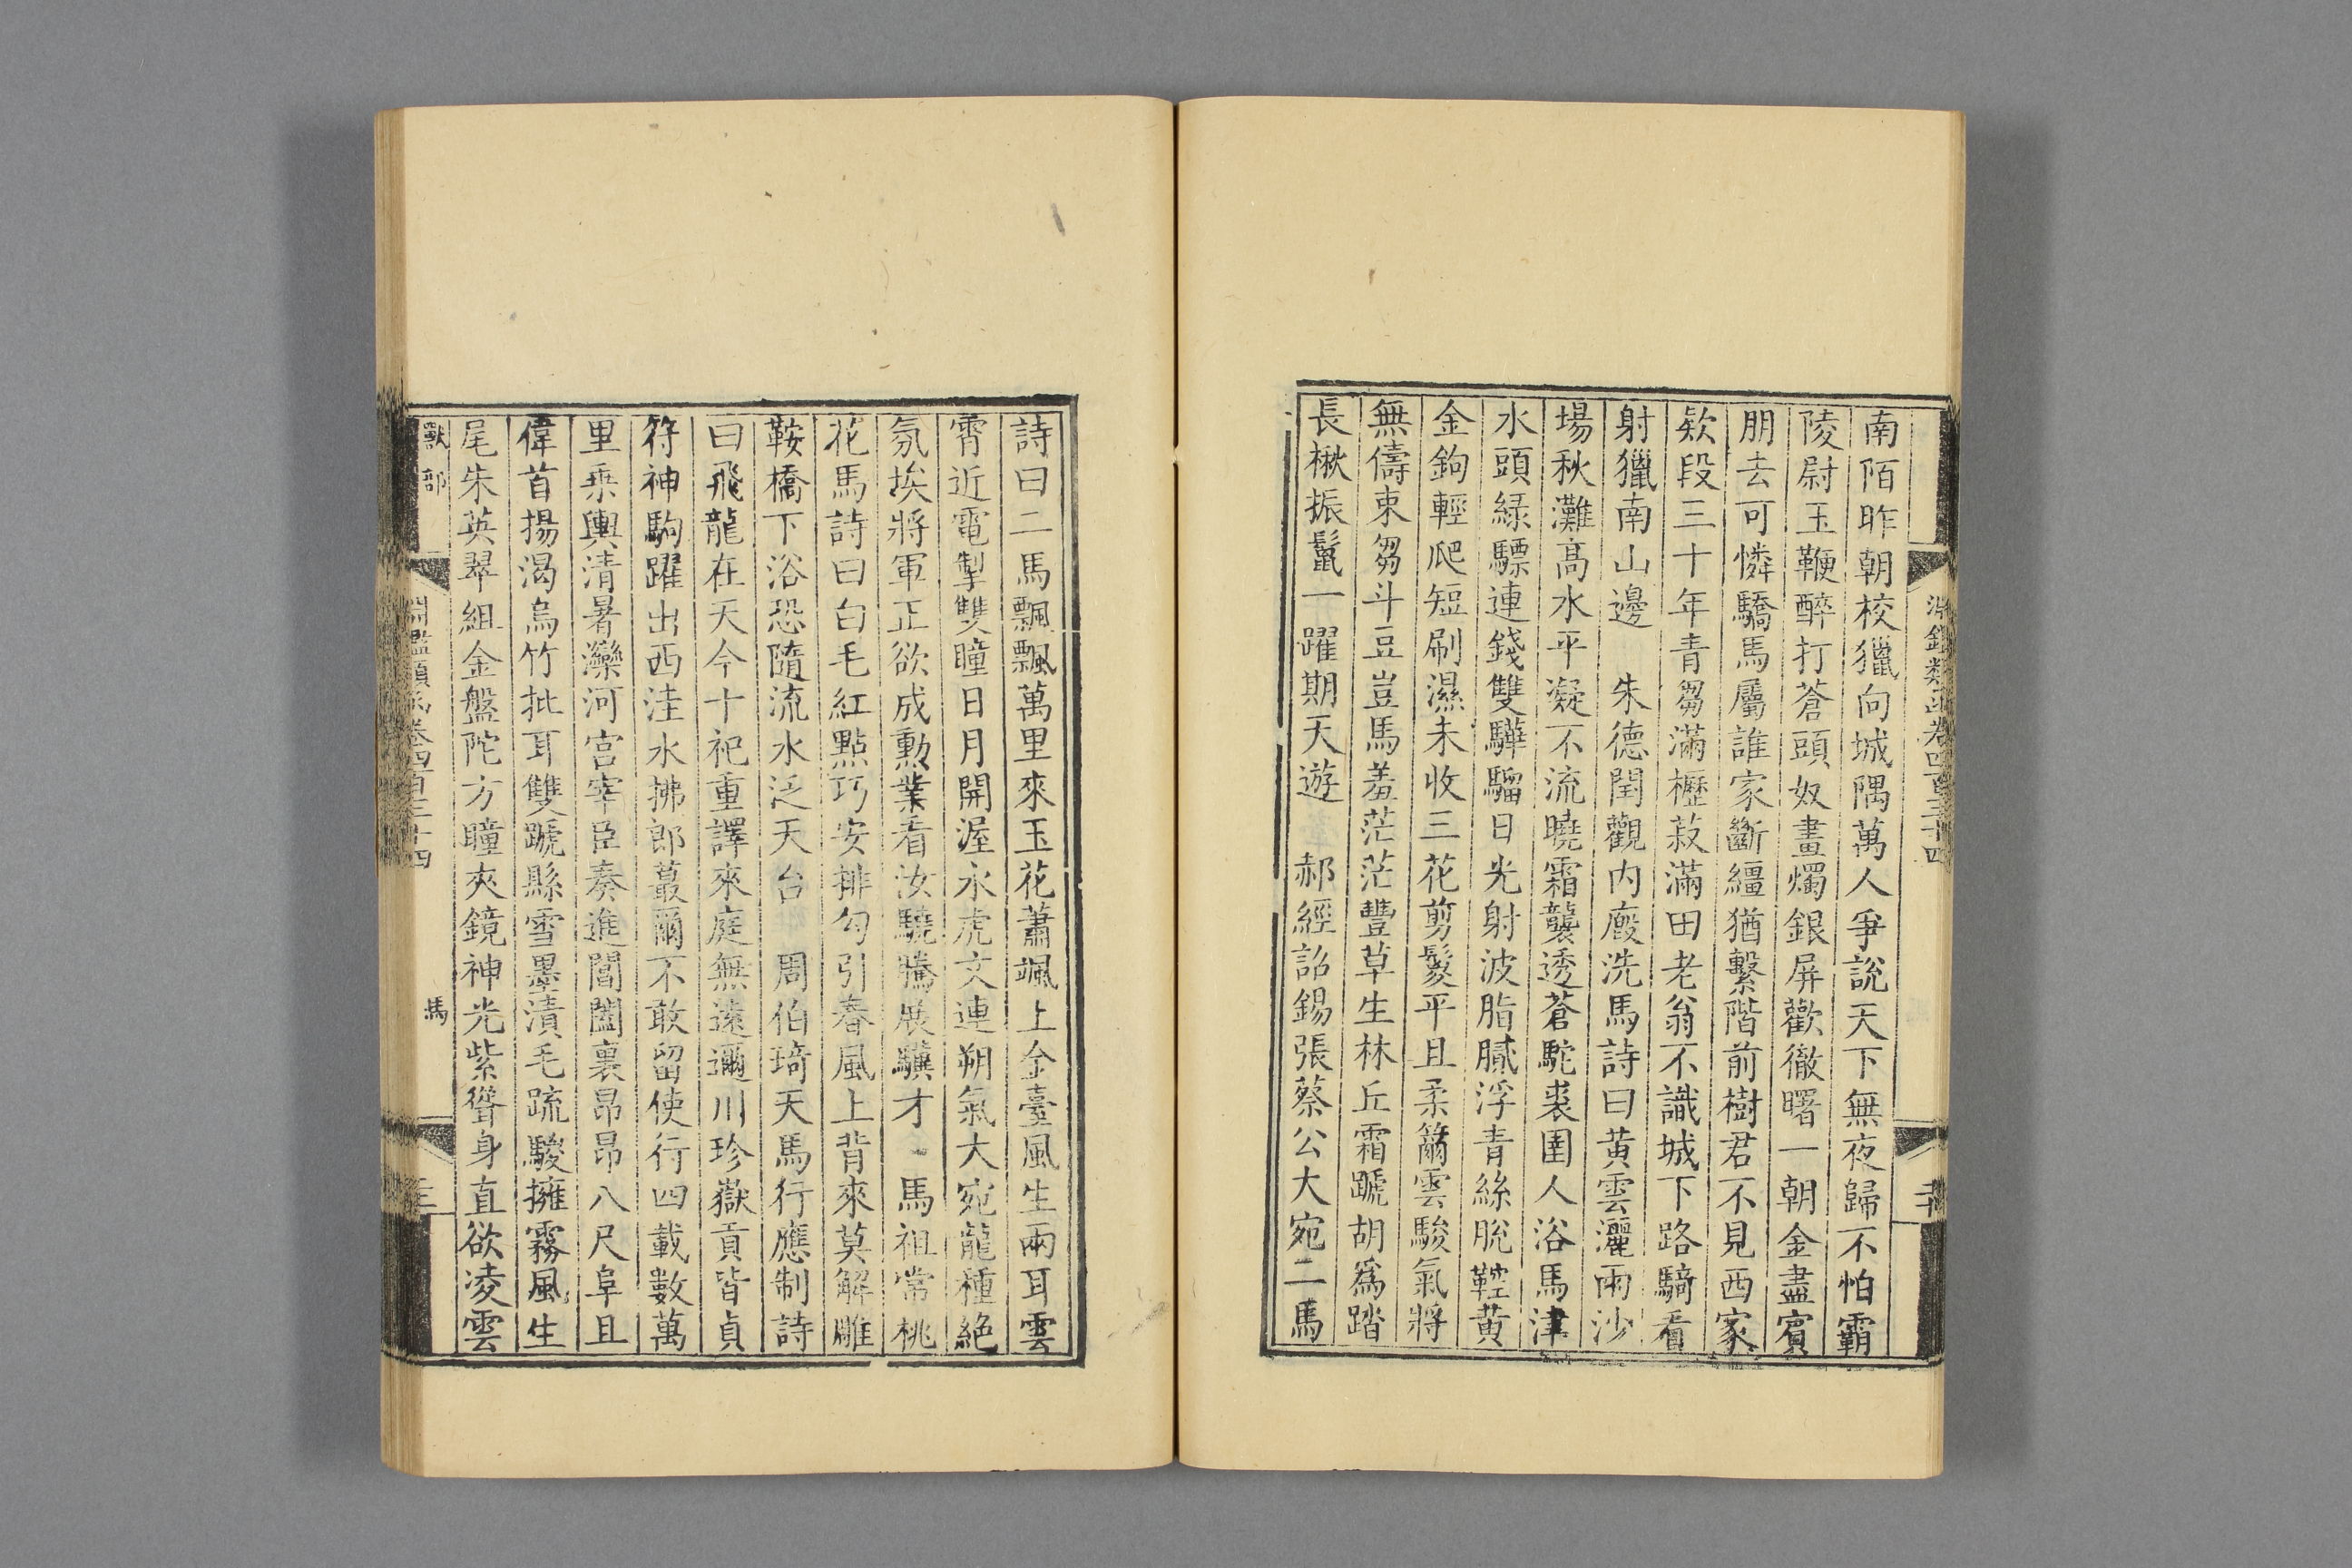 南陌昨朝校獵向城隅萬人爭說天下無夜歸不怕霸
陵尉玉鞭醉打蒼頭奴畫燭銀屏歡徹曙一朝金盡賓
朋去可憐驕馬屬誰家斷繮猶繫階前樹君不見西家
欵段三十年青芻滿櫪菽滿田老翁不識城下路騎看
射獵南山邊　朱德閏觀内廏洗馬詩曰黄雲灑雨沙
場秋灘高水平凝不流曉霜襲透蒼駝裘圉人浴馬津
水頭緑驃連錢雙驊騮日光射波脂膩浮青絲脫鞚黄
金鉤輕爬短刷濕未收三花剪鬉平且柔籋雲駿氣將
無儔束芻斗豆豈馬羞茫茫豐草生林丘霜蹏胡爲踏
長楸振鬛一躍期天遊　郝經詔錫張蔡公大宛二馬
詩曰二馬飄飄萬里來玉花蕭颯上金臺風生兩耳雲
霄近電掣雙瞳日月開渥水虎文連朔氣大宛龍種絶
氛埃將軍正欲成勲業看汝驍騰展驥才　馬祖常桃
花馬詩曰白毛紅點巧安排勾引春風上背來莫解雕
鞍橋下浴恐隨流水泛天台　周伯琦天馬行應制詩
曰飛龍在天今十祀重譯來庭無遠邇川珍嶽貢皆貞
符神駒躍出西洼水拂郎蕞爾不敢留使行四載數萬
里乘輿清暑灤河宮宰臣奏進閶闔裏昂昂八尺阜且
偉首揚渴烏竹批耳雙蹏縣雪墨漬毛疏駿擁霧風生
尾朱英翠組金盤陀方瞳夾鏡神光紫聳身直欲凌雲
獸部
淵鑑類函卷四百三十四
馬